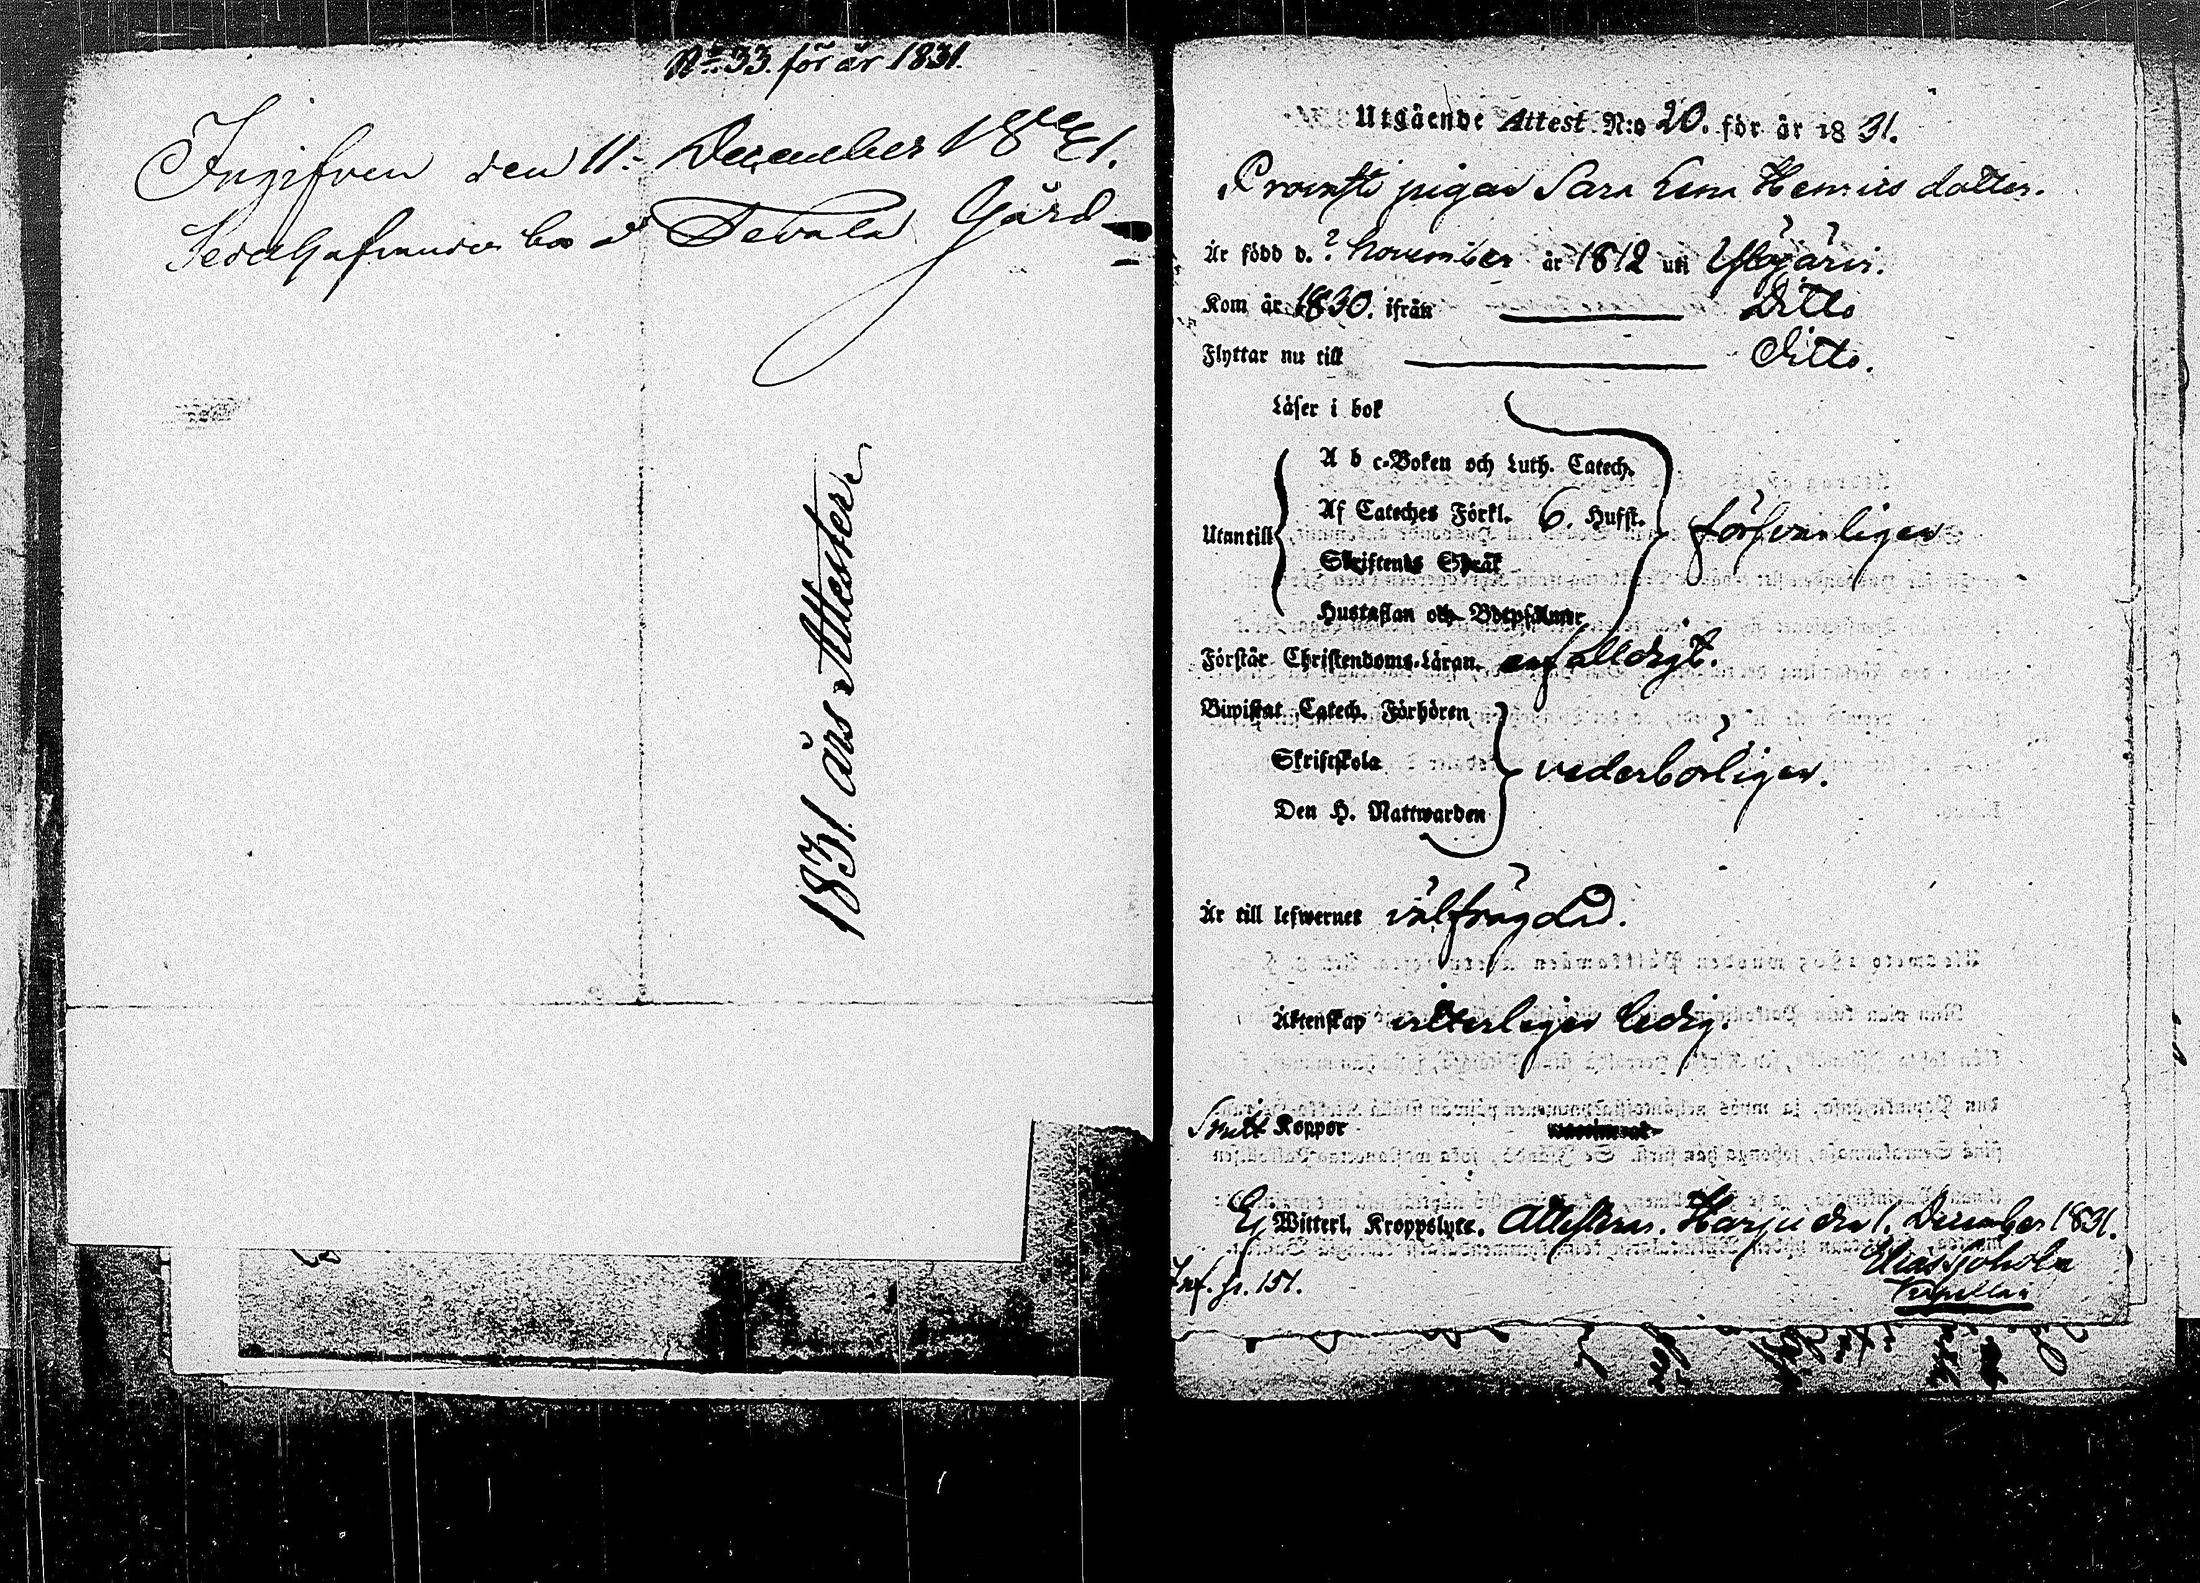 No 33. för år 1831.
Ingifven den 11 December 1831.
bos Gård
1831 års Attester
Utgående Attest N:o 20. för år 1831.
pigan Sara Lena Henrics dotter.
Är född d. ? November år 1812 uti Ylöjärvi.
Kom år 1830. ifrån Ditto
Flyttar nu till Ditto.
Läser i bok
A b c-Boken och Luth. Catech.
Af Cateches Förkl. 6. Hufst.
Utantill försvarligen
Skriftens Språk
Hustaflan och Botpsalmer
Förstår Christendoms-Läran enfalldigt.
Biwistat Catech. Förhören
Skriftskola vederbörligen.
Den H. Nattwarden
Är till lefwernet välfrägdad.
Äktenskap ledig.
Koppor
Ej Witterl. Kroppslyte. Attesteras. Harju den 1. December 1831.
Inf. p. 151.